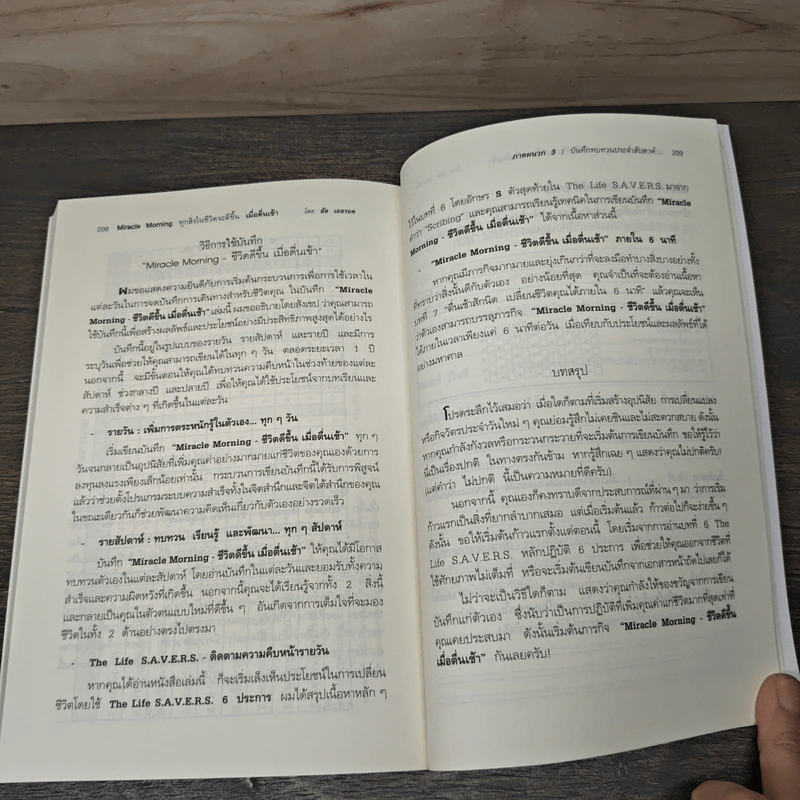 208 Miracle Morning ทุกสิ่งในชีวิตจะดีขึ้น เมื่อตื่นเช้า โดย ฮัล เอลรอด
วิธีการใช้บันทึก
"Miracle Morning - ชีวิตดีขึ้น เมื่อตื่นเช้า"
ผมขอแสดงความยินดีกับการเริ่มต้นกระบวนการเพื่อการใช้เวลาใน
แต่ละวันในการจดบันทึกการเดินทางสำหรับชีวิตคุณ ในบันทึก "Miracle
Morning - ชีวิตดีขึ้น เมื่อตื่นเช้า" เล่มนี้ ผมขออธิบายโดยสังเขป ว่าคุณสามารถ
ใช้บันทึกนี้เพื่อสร้างผลลัพธ์และประโยชน์อย่างมีประสิทธิภาพสูงสุดได้อย่างไร
บันทึกนี้อยู่ในรูปแบบของรายวัน รายสัปดาห์ และรายปี และมีการ
ระบุวันเพื่อช่วยให้คุณสามารถเขียนได้ในทุก ๆ วัน ตลอดระยะเวลา 1 ปี
นอกจากนี้ จะมีขั้นตอนให้คุณได้ทบทวนความคืบหน้าในช่วงท้ายของแต่ละ
สัปดาห์ ช่วงกลางปี และปลายปี เพื่อให้คุณได้ใช้ประโยชน์จากบทเรียนและ
ความสำเร็จต่าง ๆ ที่เกิดขึ้นในแต่ละวัน
- รายวัน : เพิ่มการตระหนักรู้ในตัวเอง... ทุก ๆ วัน
เริ่มเขียนบันทึก "Miracle Morning - ชีวิตดีขึ้น เมื่อตื่นเช้า" ทุก ๆ
วันจนกลายเป็นอุปนิสัยที่เพิ่มคุณค่าอย่างมากมายแก่ชีวิตของคุณเองด้วยการ
ลงทุนลงแรงเพียงเล็กน้อยเท่านั้น กระบวนการเขียนบันทึกนี้ได้รับการพิสูจน์
แล้วว่าช่วยตั้งโปรแกรมระบบความสำเร็จทั้งในจิตสำนึกและจิตใต้สำนึกของคุณ
ในขณะเดียวกันก็ช่วยพัฒนาความคิดเห็นเกี่ยวกับตัวเองอย่างรวดเร็ว
- รายสัปดาห์ : ทบทวน เรียนรู้ และพัฒนา... ทุก ๆ สัปดาห์
บันทึก "Miracle Morning - ชีวิตดีขึ้น เมื่อตื่นเช้า" ให้คุณได้มีโอกาส
ทบทวนตัวเองในแต่ละสัปดาห์ โดยอ่านบันทึกในแต่ละวันและยอมรับทั้งความ
สำเร็จและความผิดหวังที่เกิดขึ้น นอกจากนี้คุณจะได้เรียนรู้จากทั้ง 2 สิ่งนี้
และกลายเป็นคุณในตัวตนแบบใหม่ที่ดีขึ้น ๆ อันเกิดจากการเต็มใจที่จะมอง
ชีวิตในทั้ง 2 ด้านอย่างตรงไปตรงมา
- The Life S.A.V.E.R.S. - ติดตามความคืบหน้ารายวัน
หากคุณได้อ่านหนังสือเล่มนี้ ก็จะเริ่มเล็งเห็นประโยชน์ในการเปลี่ยน
ชีวิตโดยใช้ The Life S.A.V.E.R.S. 6 ประการ ผมได้สรุปเนื้อหาหลัก ๆ
ภาคผนวก 3 : บันทึกทบทวนประจำสัปดาห์ 209
ไว้ในบทที่ 6 โดยอักษร S ตัวสุดท้ายใน The Life S.A.V.E.R.S. มาจาก
คำว่า "Scribing" และคุณสามารถเรียนรู้เทคนิคในการเขียนบันทึก "Miracle
Morning - ชีวิตดีขึ้น เมื่อตื่นเช้า" ได้จากเนื้อหาส่วนนี้
- "Miracle Morning - ชีวิตดีขึ้น เมื่อตื่นเช้า" ภายใน 6 นาที
หากคุณมีภารกิจมากมายและยุ่งเกินกว่าที่จะลงมือทำบางสิ่งบางอย่างทั้ง
ที่ทราบว่าสิ่งนั้นดีกับตัวเอง อย่างน้อยที่สุด คุณจำเป็นที่จะต้องอ่านเนื้อหา
บทที่ 7 "ตื่นเช้าสักนิด เปลี่ยนชีวิตคุณได้ภายใน 6 นาที" แล้วคุณจะเห็น
ว่าตัวเองสามารถบรรลุภารกิจ "Miracle Morning - ชีวิตดีขึ้น เมื่อตื่นเช้า"
ได้ภายในเวลาเพียงแค่ 6 นาทีต่อวัน เมื่อเทียบกับประโยชน์และผลลัพธ์ที่ได้
อย่างมหาศาล
บทสรุป
โปรดระลึกไว้เสมอว่า เมื่อใดก็ตามที่เริ่มสร้างอุปนิสัย การเปลี่ยนแปลง
หรือกิจวัตรประจำวันใหม่ ๆ คุณย่อมรู้สึกไม่เคยชินและไม่สะดวกสบาย ดังนั้น
หากคุณกำลังกังวลหรือกระวนกระวายที่จะเริ่มต้นการเขียนบันทึก ขอให้รู้ไว้ว่า
นี่เป็นเรื่องปกติ ในทางตรงกันข้าม หากรู้สึกเฉย ๆ แสดงว่าคุณไม่ปกติครับ!
(แต่คำว่า ไม่ปกติ นี้เป็นความหมายที่ดีครับ)
นอกจากนี้ คุณเองก็คงทราบดีจากประสบการณ์ที่ผ่าน ๆ มา ว่าการเริ่ม
ก้าวแรกเป็นสิ่งที่ยากลำบากเสมอ แต่เมื่อเริ่มต้นแล้ว ก้าวต่อไปก็จะง่ายขึ้น ๆ
ดังนั้น ขอให้เริ่มต้นก้าวแรกตั้งแต่ตอนนี้ โดยเริ่มจากการอ่านบทที่ 6 The
Life S.A.V.E.R.S. หลักปฏิบัติ 6 ประการ เพื่อช่วยให้คุณออกจากชีวิตที่
ใช้ศักยภาพไม่เต็มที่ หรือจะเริ่มต้นเขียนบันทึกจากเอกสารหน้าถัดไปเลยก็ได้
ไม่ว่าจะเป็นวิธีใดก็ตาม แสดงว่าคุณกำลังให้ของขวัญจากการเขียน
บันทึกแก่ตัวเอง ซึ่งนับว่าเป็นการปฏิบัติที่เพิ่มคุณค่าแก่ชีวิตมากที่สุดเท่าที่
คุณเคยประสบมา ดังนั้นเริ่มต้นภารกิจ "Miracle Morning - ชีวิตดีขึ้น
เมื่อตื่นเช้า" กันเลยครับ!